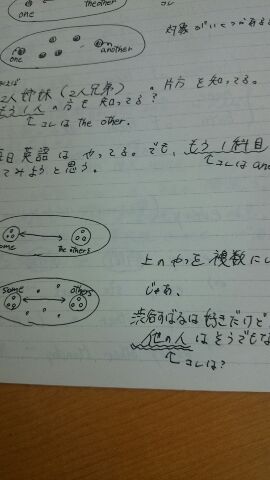 one the other コレ
one another
対象がいくつかある
2人姉妹(2人兄弟)の片方を知ってる。
もう1人の方も知ってる?
コレは the other.
毎日英語はやってる。でも、もう1科目
てみようと思う。
コレは
some the others
上のやつを複数に
some others
じゃあ、
渋谷すばるは好きだけど
他の人はそうでもな
コレは?